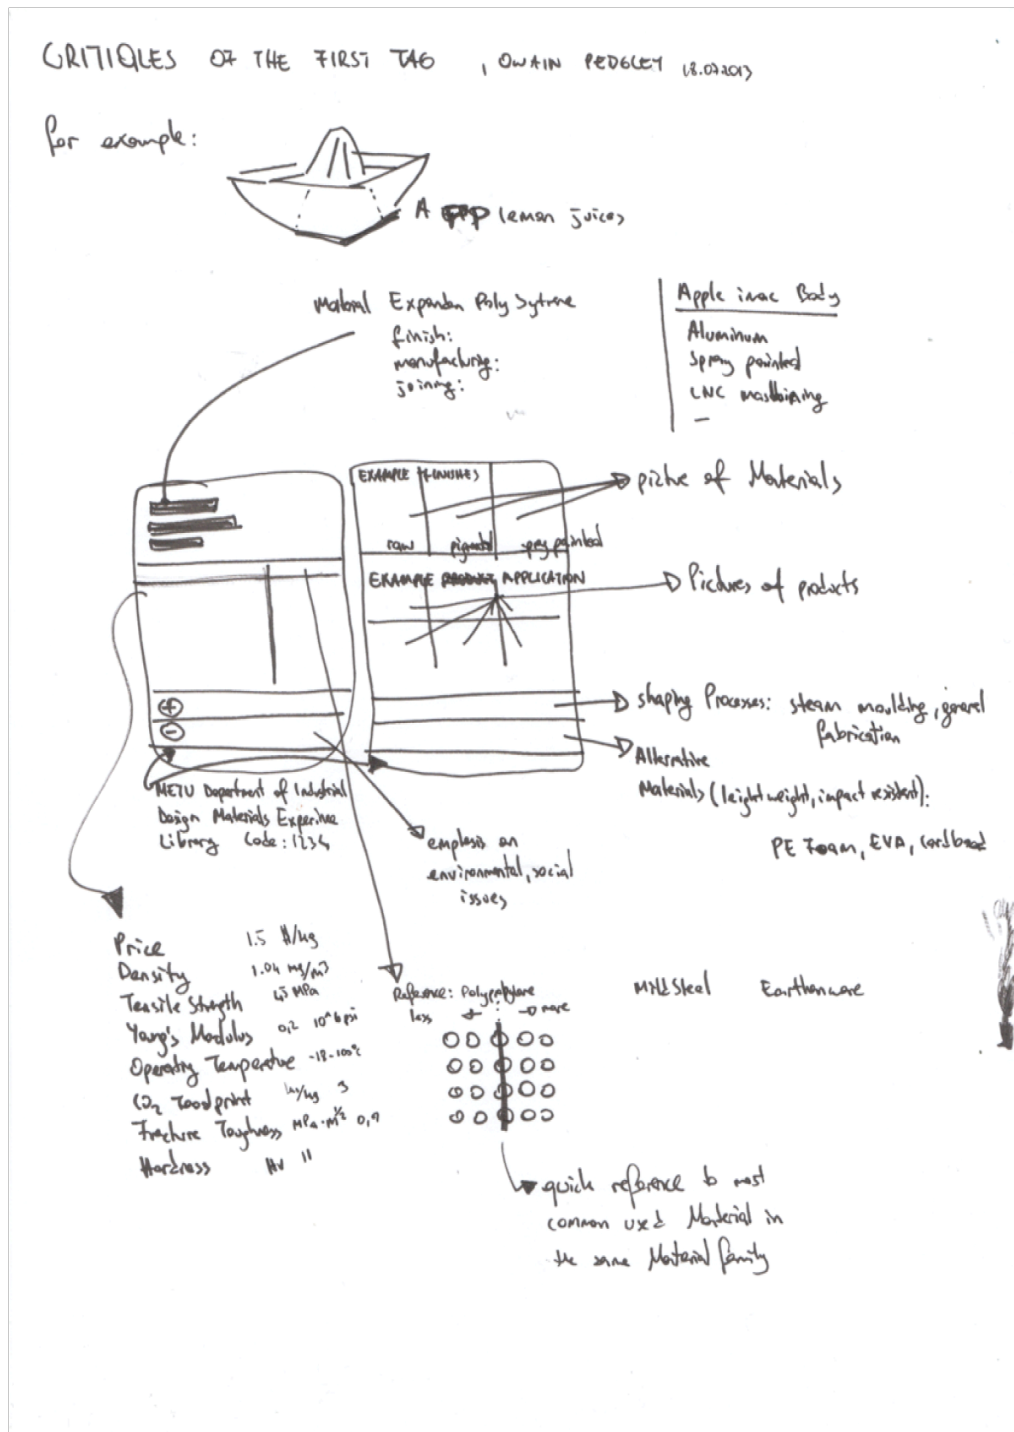 CRITIQLES OF THE FIRST TAG , OWAIN PEDGLEY 18.07.2013
for example:
A lemon juices
Material Expanden Poly Sytrene
finish:
manufacturing:
joining:
Apple imac Body
Aluminum
Spray painted
CNC machining
—
EXAMPLE FINISHES
raw pigmented spray painted
EXAMPLE APPLICATION
pictue of Materials
Pictures of products
shaping Processes: steam moulding, general
fabrication
Alternative
Materials (leight weight, impact resistent):
PE Foam, EVA, cardboad
+
-
METU Department of Industrial
Design Materials Experince
Library Code: 1234
emphasis on
environmental, social
issues
Price 1.5 $/kg
Density 1.04 mg/m3
Tensile Strength 45 MPa
Young's Modulus 0,2 10^6 psi
Operating Temperature -18-100°C
CO2 Footprint kg/kg 3
Fracture Toughness MPa.m^1/2 0,9
Hardness HV 11
Reference: Polypropylene Mild Steel Earthenware
less ← → more
quick reference to most
common used Material in
the same Material family